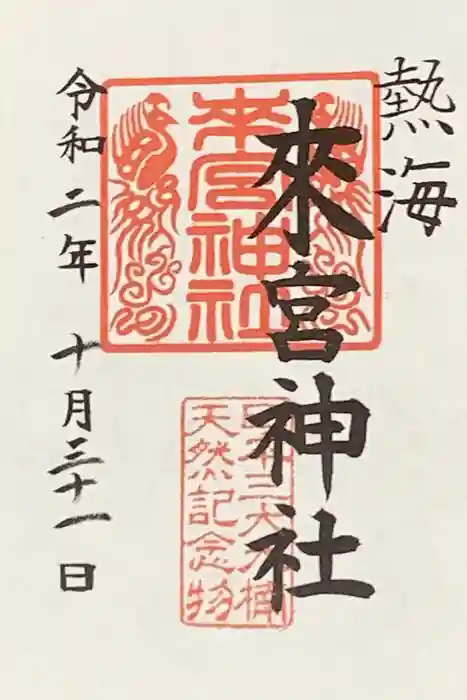 熱海
來宮神社
令和二年 十月三十一日
來宮神社
日本三大大楠
天然記念物